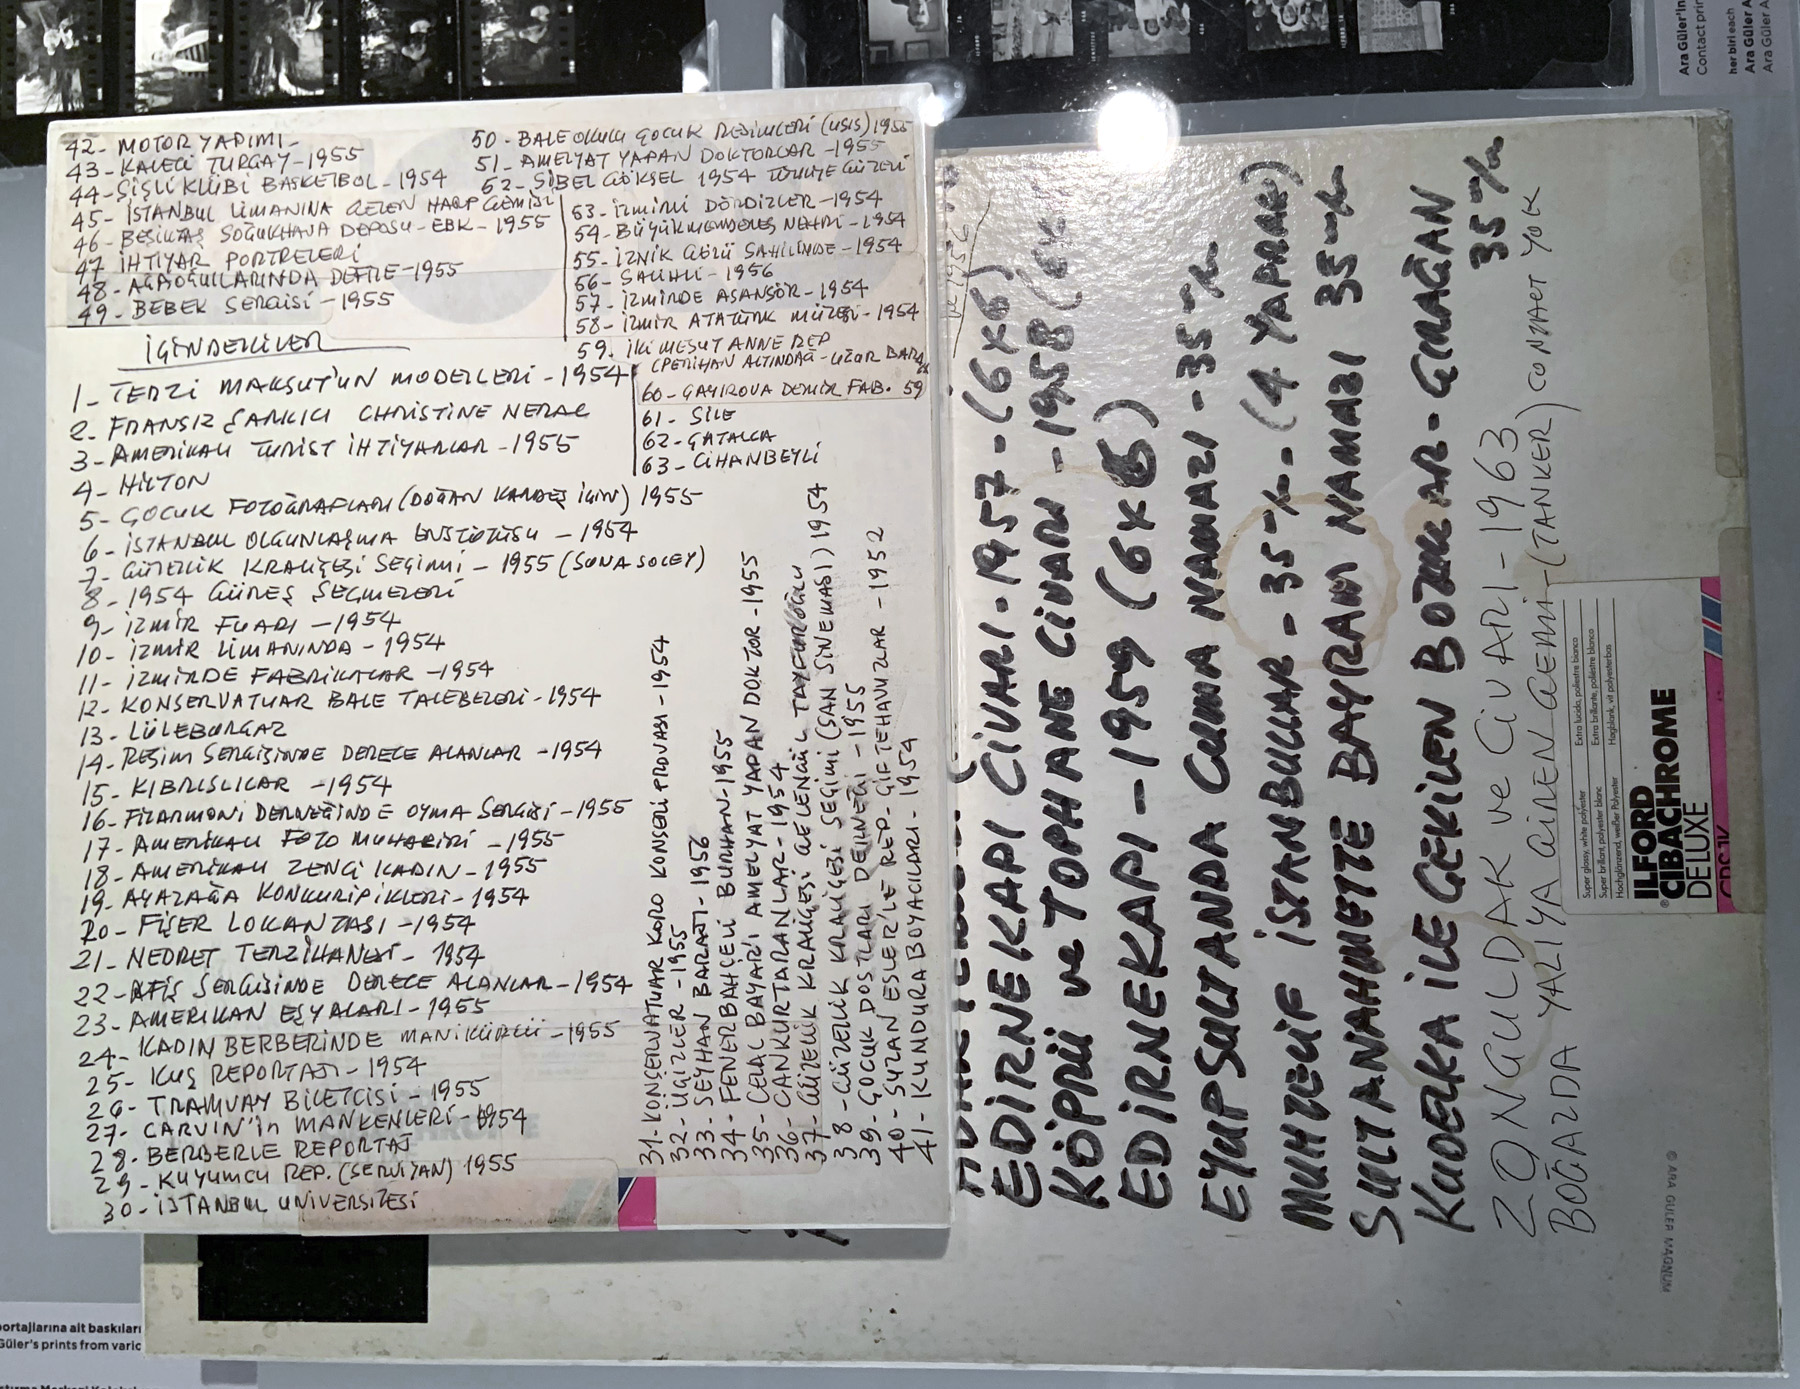 42- MOTOR YAPIMI
43- KALECİ TURGAY-1955
44- ŞİŞLİ KLÜBİ BASKETBOL-1954
45- İSTANBUL LİMANINA GELEN HARP GEMİSİ
46- BEŞİKTAŞ SOĞUKHAVA DEPOSU-EBK-1955
47 İHTİYAR PORTRELERİ
48- AĞAOĞULLARINDA DEFİLE-1955
49- BEBEK SERGİSİ-1955
50- BALE OKULU ÇOCUK RESİMLERİ (USIS) 1955
51- AMELYAT YAPAN DOKTORLAR-1955
62- SİBEL GÖKSEL 1954 TÜRKİYE GÜZELİ
53- İZMİRLİ DÖRDİZLER-1954
54- BÜYÜKMENDERES NEHRİ-1954
55- İZNİK GÖLÜ SAHİLİNDE-1954
56- SALİHLİ-1956
57- İZMİRDE ASANSÖR-1954
58- İZMİR ATATÜRK MÜZESİ-1954
59. İKİ MESUT ANNE REP
(PERİHAN ALTINDAĞ-
60- ÇAYIROVA DEMİR FAB. 59
61- ŞİLE
62- ÇATALCA
63- CİHANBEYLİ
İÇİNDEKİLER
1- TERZİ MAKSUT'UN MODELLERİ-1954
2- FRANSIZ ŞARKICI CHRISTINE NERAC
3- AMERİKALI TURİST İHTİYARLAR-1955
4- HİLTON
5- ÇOCUK FOTOĞRAFLARI (DOĞAN KARDEŞ İÇİN) 1955
6- İSTANBUL OLGUNLAŞMA ENSTİTÜSÜ-1954
7- GÜZELLİK KRALİÇESİ SEÇİMİ-1955 (SUNA SOLEY)
8- 1954 GÜREŞ SEÇMELERİ
9- İZMİR FUARI-1954
10- İZMİR LİMANINDA-1954
11- İZMİRDE FABRİKALAR-1954
12- KONSERVATUAR BALE TALEBELERİ-1954
13- LÜLEBURGAZ
14- RESİM SERGİSİNDE DERECE ALANLAR-1954
15- KIBRISLILAR-1954
16- FİLARMONİ DERNEĞİNDE OYMA SERGİSİ-1955
17- AMERİKALI FOTO MUHABİRİ-1955
18- AMERİKALI ZENCİ KADIN-1955
19- AYAZAĞA KONKURİPİKLERİ-1954
20- FİŞER LOKANTASI-1954
21- NEDRET TERZİHANESİ-1954
22- AFİŞ SERGİSİNDE DERECE ALANLAR-1954
23- AMERİKAN EŞYALARI-1955
24- KADIN BERBERİNDE MANİKÜRCÜ-1955
25- KUŞ REPORTAJI-1954
26- TRAMVAY BİLETCİSİ-1955
27- CARVIN'İN MANKENLERİ-1954
28- BERBERLE REPORTAJ
29- KUYUMCU REP. (SERVİYAN) 1955
30- İSTANBUL ÜNİVERSİTESİ
31- KONSERVATUAR KORO KONSERİ PROVASI-1954
32- ÜÇİZLER-1955
33- SEYHAN BARAJI-1956
34- FENERBAHÇELİ BURHAN-1955
35- CELAL BAYAR'I AMELYAT YAPAN DOKTOR-1955
36- CANKURTARANLAR-1954
37- GÜZELLİK KRALİÇESİ GÜLENGÜL TAYFUROĞLU
38- GÜZELLİK KRALİÇESİ SEÇİMİ (ŞAN SİNEMASI) 1954
39- ÇOCUK DOSTLARI DERNEĞİ-1955
40- SUZAN ESLER'LE REP- ÇİFTEHAVUZLAR-1952
41- KUNDURA BOYACILARI-1954
EDİRNEKAPI CİVARI-1957-(6x6)
KÖPRÜ ve TOPHANE CİVARI-1958 (6x
EDİRNEKAPI-1959 (6x6)
EYÜPSULTANDA CUMA NAMAZI-35 m/m
MUHTELİF İSTANBULLAR-35 m/m-(4 YAPRAK)
SULTANAHMETTE BAYRAM NAMAZI 35 m/m
KUDELKA İLE ÇEKİLEN BOZKIR-ÇIRAĞAN 35 m/m
ZONGULDAK ve CİVARI-1963
BOĞAZDA YALIYA GİREN GEMİ-(TANKER) CONTACT YOK
ve 1956
Super glossy, white polyester
Super brillant, polyester blanc
Hochglänzend, weißer Polyester
Extra lucida, poliestere bianco
Extra brillante, poliestre blanco
Hogblank, vit polyesterbas
ILFORD
®CIBACHROME
DELUXE
© ARA GÜLER MAGNUM
Ara Güler'in
Contact prin
her biri each
Ara Güler A
Ara Güler A
portajlarına ait baskıları
Güler's prints from vario